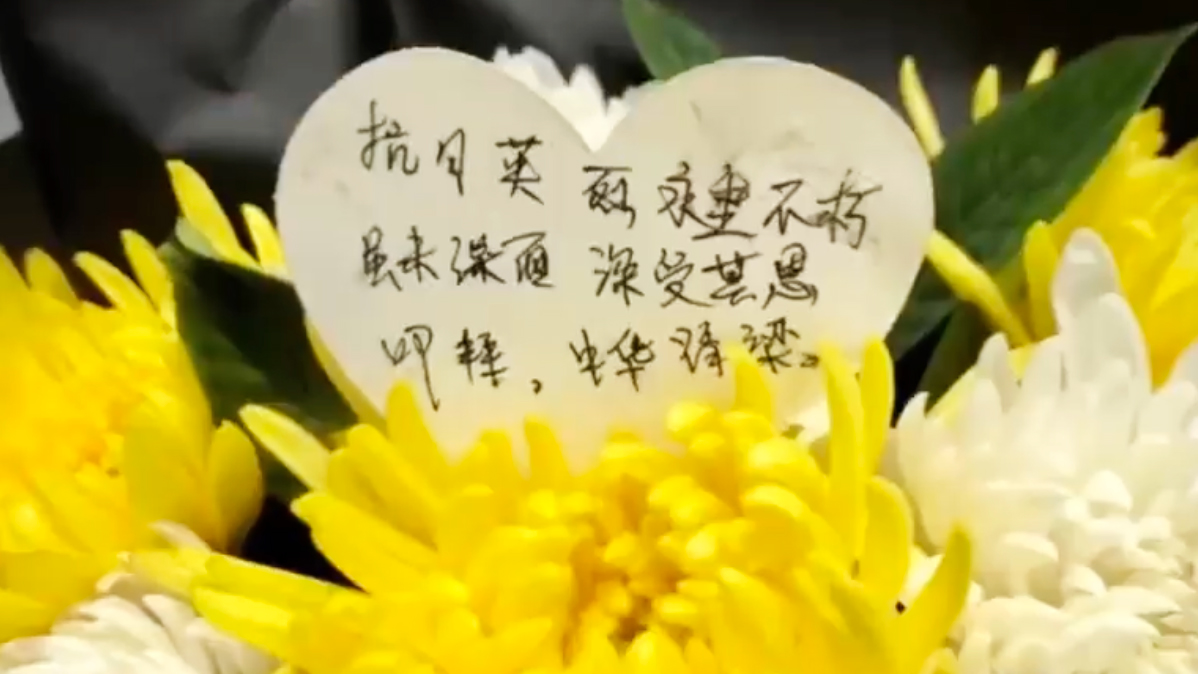 抗日英烈永垂不朽
虽未谋面 深受其恩
叩拜，中华脊梁。